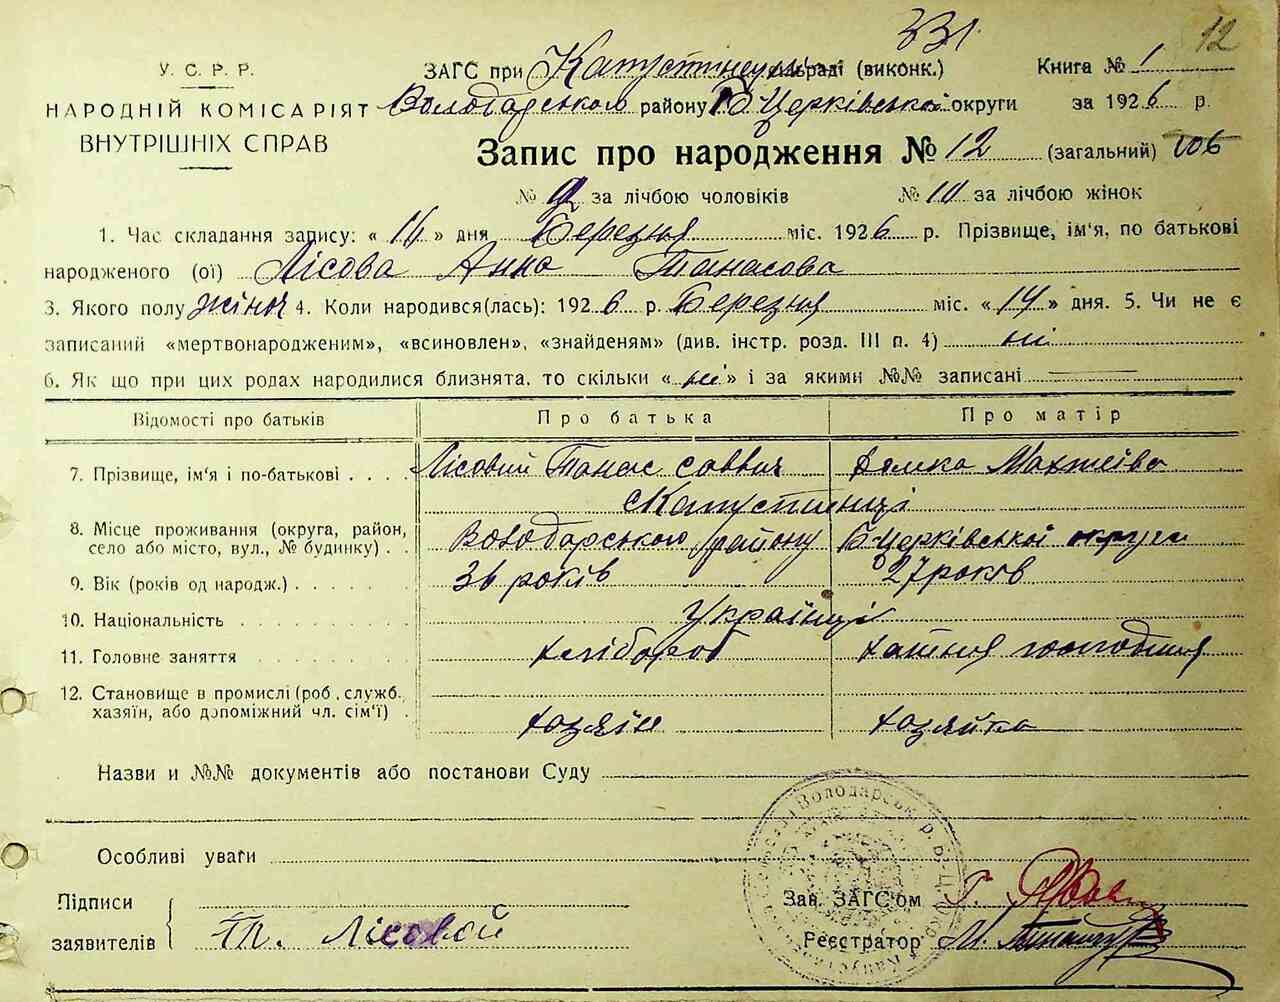 331
12
У. С. Р. Р.
НАРОДНІЙ КОМІСАРІЯТ
ВНУТРІШНІХ СПРАВ
ЗАГС при сельраді (виконк.) Книга № 1
Володарськом району Б Церківської округи за 1926 р.
Запис про народження № 12 (загальний)
№ за лічбою чоловіків № 10 за лічбою жінок
1. Час складання запису: « 14 » дня Березня міс. 1926 р. Прізвище, ім'я, по батькові
народженого (ої) Лісова Анна Танасова
3. Якого полу жіноч 4. Коли народився(лась): 1926 р. Березня міс. «14» дня. 5. Чи не є
записаний «мертвонародженим», «всиновлен», «знайденям» (див. інстр. розд. III п. 4) ні
6. Як що при цих родах народилися близнята, то скільки « ні » і за якими №№ записані
Відомості про батьків Про батька Про матір
7. Прізвище, ім'я і по-батькові . . . . Лісовий Танас Саввич
с Капустинці
8. Місце проживання (округа, район, село або місто, вул., № будинку) . . Володарського району Б Церківської округи
9. Вік (років од народж.) . . . . . . 36 років 27 років
10. Національність . . . . . . . . Українці
11. Головне заняття . . . . . . . . хлібороб хатня господиня
12. Становище в промислі (роб., служб.
хазяїн, або допоміжний чл. сім'ї) . хозяїн хозяйка
Назви и №№ документів або постанови Суду
Особливі уваги
Підписи
заявителів Т. Лісовой
Зав. ЗАГС'ом
Реєстратор